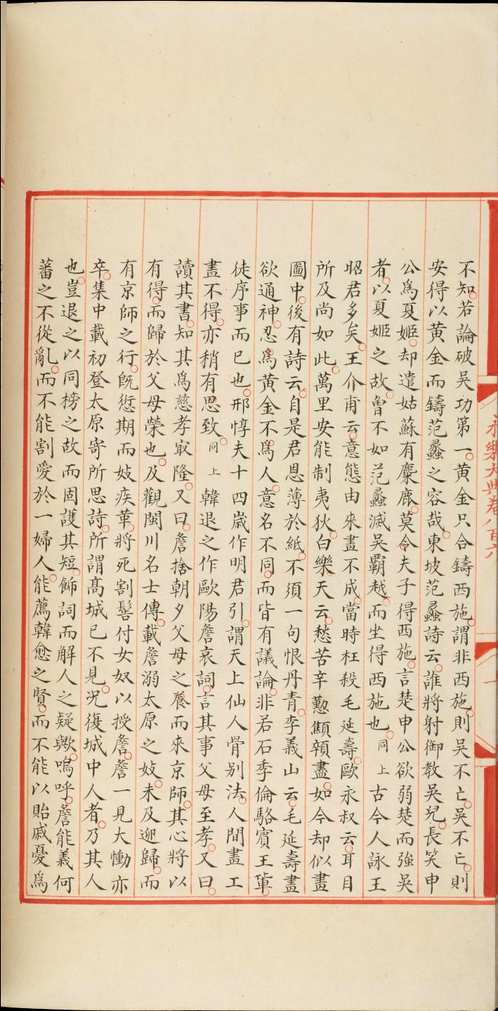 永樂大典卷八百六
不知若論破吳功第一黃金只合鑄西施謂非西施則吳不亡吳不亡則
安得以黃金而鑄范蠡之容哉東坡范蠡詩云誰將射御教吳兒長笑申
公爲夏姬却遣姑蘇有麋鹿莫令夫子得西施言楚申公欲弱楚而強吳
者以夏姬之故魯不如范蠡滅吳霸越而坐得西施也同上古今人詠王
昭君多矣王介甫云意態由來畫不成當時枉殺毛延壽歐永叔云耳目
所及尚如此萬里安能制夷狄白樂天云愁苦辛懃顦顇盡如今却似畫
圖中後有詩云自是君恩薄於紙不須一句恨丹青李義山云毛延壽畫
欲通神忍爲黃金不爲人意名不同而皆有議論非若石季倫駱賓王軰
徒序事而已也邢惇夫十四歲作明君引謂天上仙人骨别法人間畫工
畫不得亦稍有思致同上韓退之作歐陽詹哀詞言其事父母至孝又曰
讀其書知其爲慈孝㝡隆又曰詹捨朝夕父母之養而來京師其心將以
有得而歸於父母榮也及觀閩川名士傳載詹溺太原之妓未及迎歸而
有京師之行旣愆期而妓疾革將死割髻付女奴以授詹詹一見大慟亦
卒集中載初登太原寄所思詩所謂高城已不見況復城中人者乃其人
也豈退之以同榜之故而固護其短飾詞而解人之疑歟嗚呼詹能義何
蕃之不從亂而不能割愛於一婦人能薦韓愈之賢而不能以貽戚憂爲